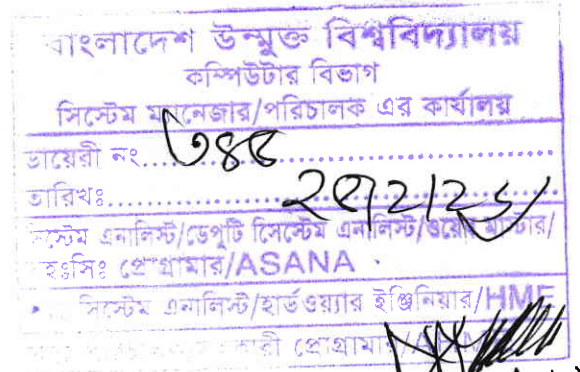 বাংলাদেশ উন্মুক্ত বিশ্ববিদ্যালয়
কম্পিউটার বিভাগ
সিস্টেম ম্যানেজার/পরিচালক এর কার্যালয়
ডায়েরী নং..... ৩৪৫
তারিখঃ.....
সিস্টেম এনালিস্ট/ডেপুটি সিস্টেম এনালিস্ট/ওয়েব মাস্টার/
প্রোগ্রামার/ASANA
সিস্টেম এনালিস্ট/হার্ডওয়্যার ইঞ্জিনিয়ার/HME
প্রোগ্রামার/